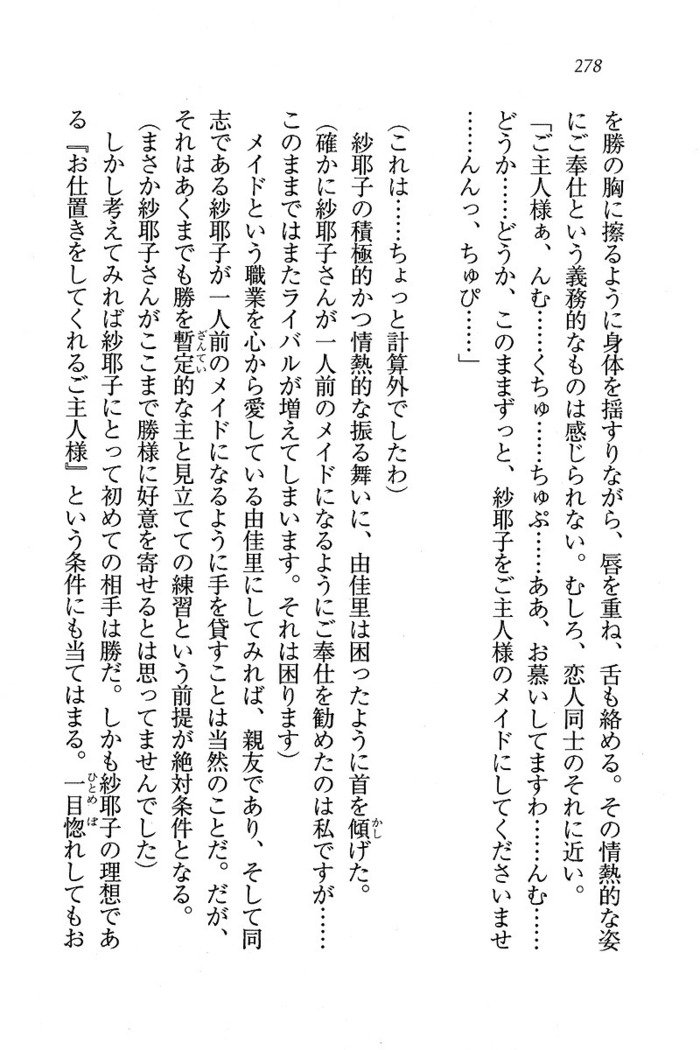 278
を勝の胸に擦るように身体を揺すりながら、唇を重ね、舌も絡める。その情熱的な姿
にご奉仕という義務的なものは感じられない。むしろ、恋人同士のそれに近い。
「ご主人様ぁ、んむ……くちゅ……ちゅぷ……ああ、お慕いしてますわ……んむ……
どうか……どうか、このままずっと、紗耶子をご主人様のメイドにしてくださいませ
……んんっ、ちゅぴ……」
(これは……ちょっと計算外でしたわ)
紗耶子の積極的かつ情熱的な振る舞いに、由佳里は困ったように首を傾げた。
(確かに紗耶子さんが一人前のメイドになるようにご奉仕を勧めたのは私ですが……
このままではまたライバルが増えてしまいます。それは困ります)
メイドという職業を心から愛している由佳里にしてみれば、親友であり、そして同
志である紗耶子が一人前のメイドになるように手を貸すことは当然のことだ。だが、
それはあくまでも勝を暫定的な主と見立てての練習という前提が絶対条件となる。
(まさか紗耶子さんがここまで勝様に好意を寄せるとは思ってませんでした)
しかし考えてみれば紗耶子にとって初めての相手は勝だ。しかも紗耶子の理想であ
る『お仕置きをしてくれるご主人様』という条件にも当てはまる。一目惚れしてもお